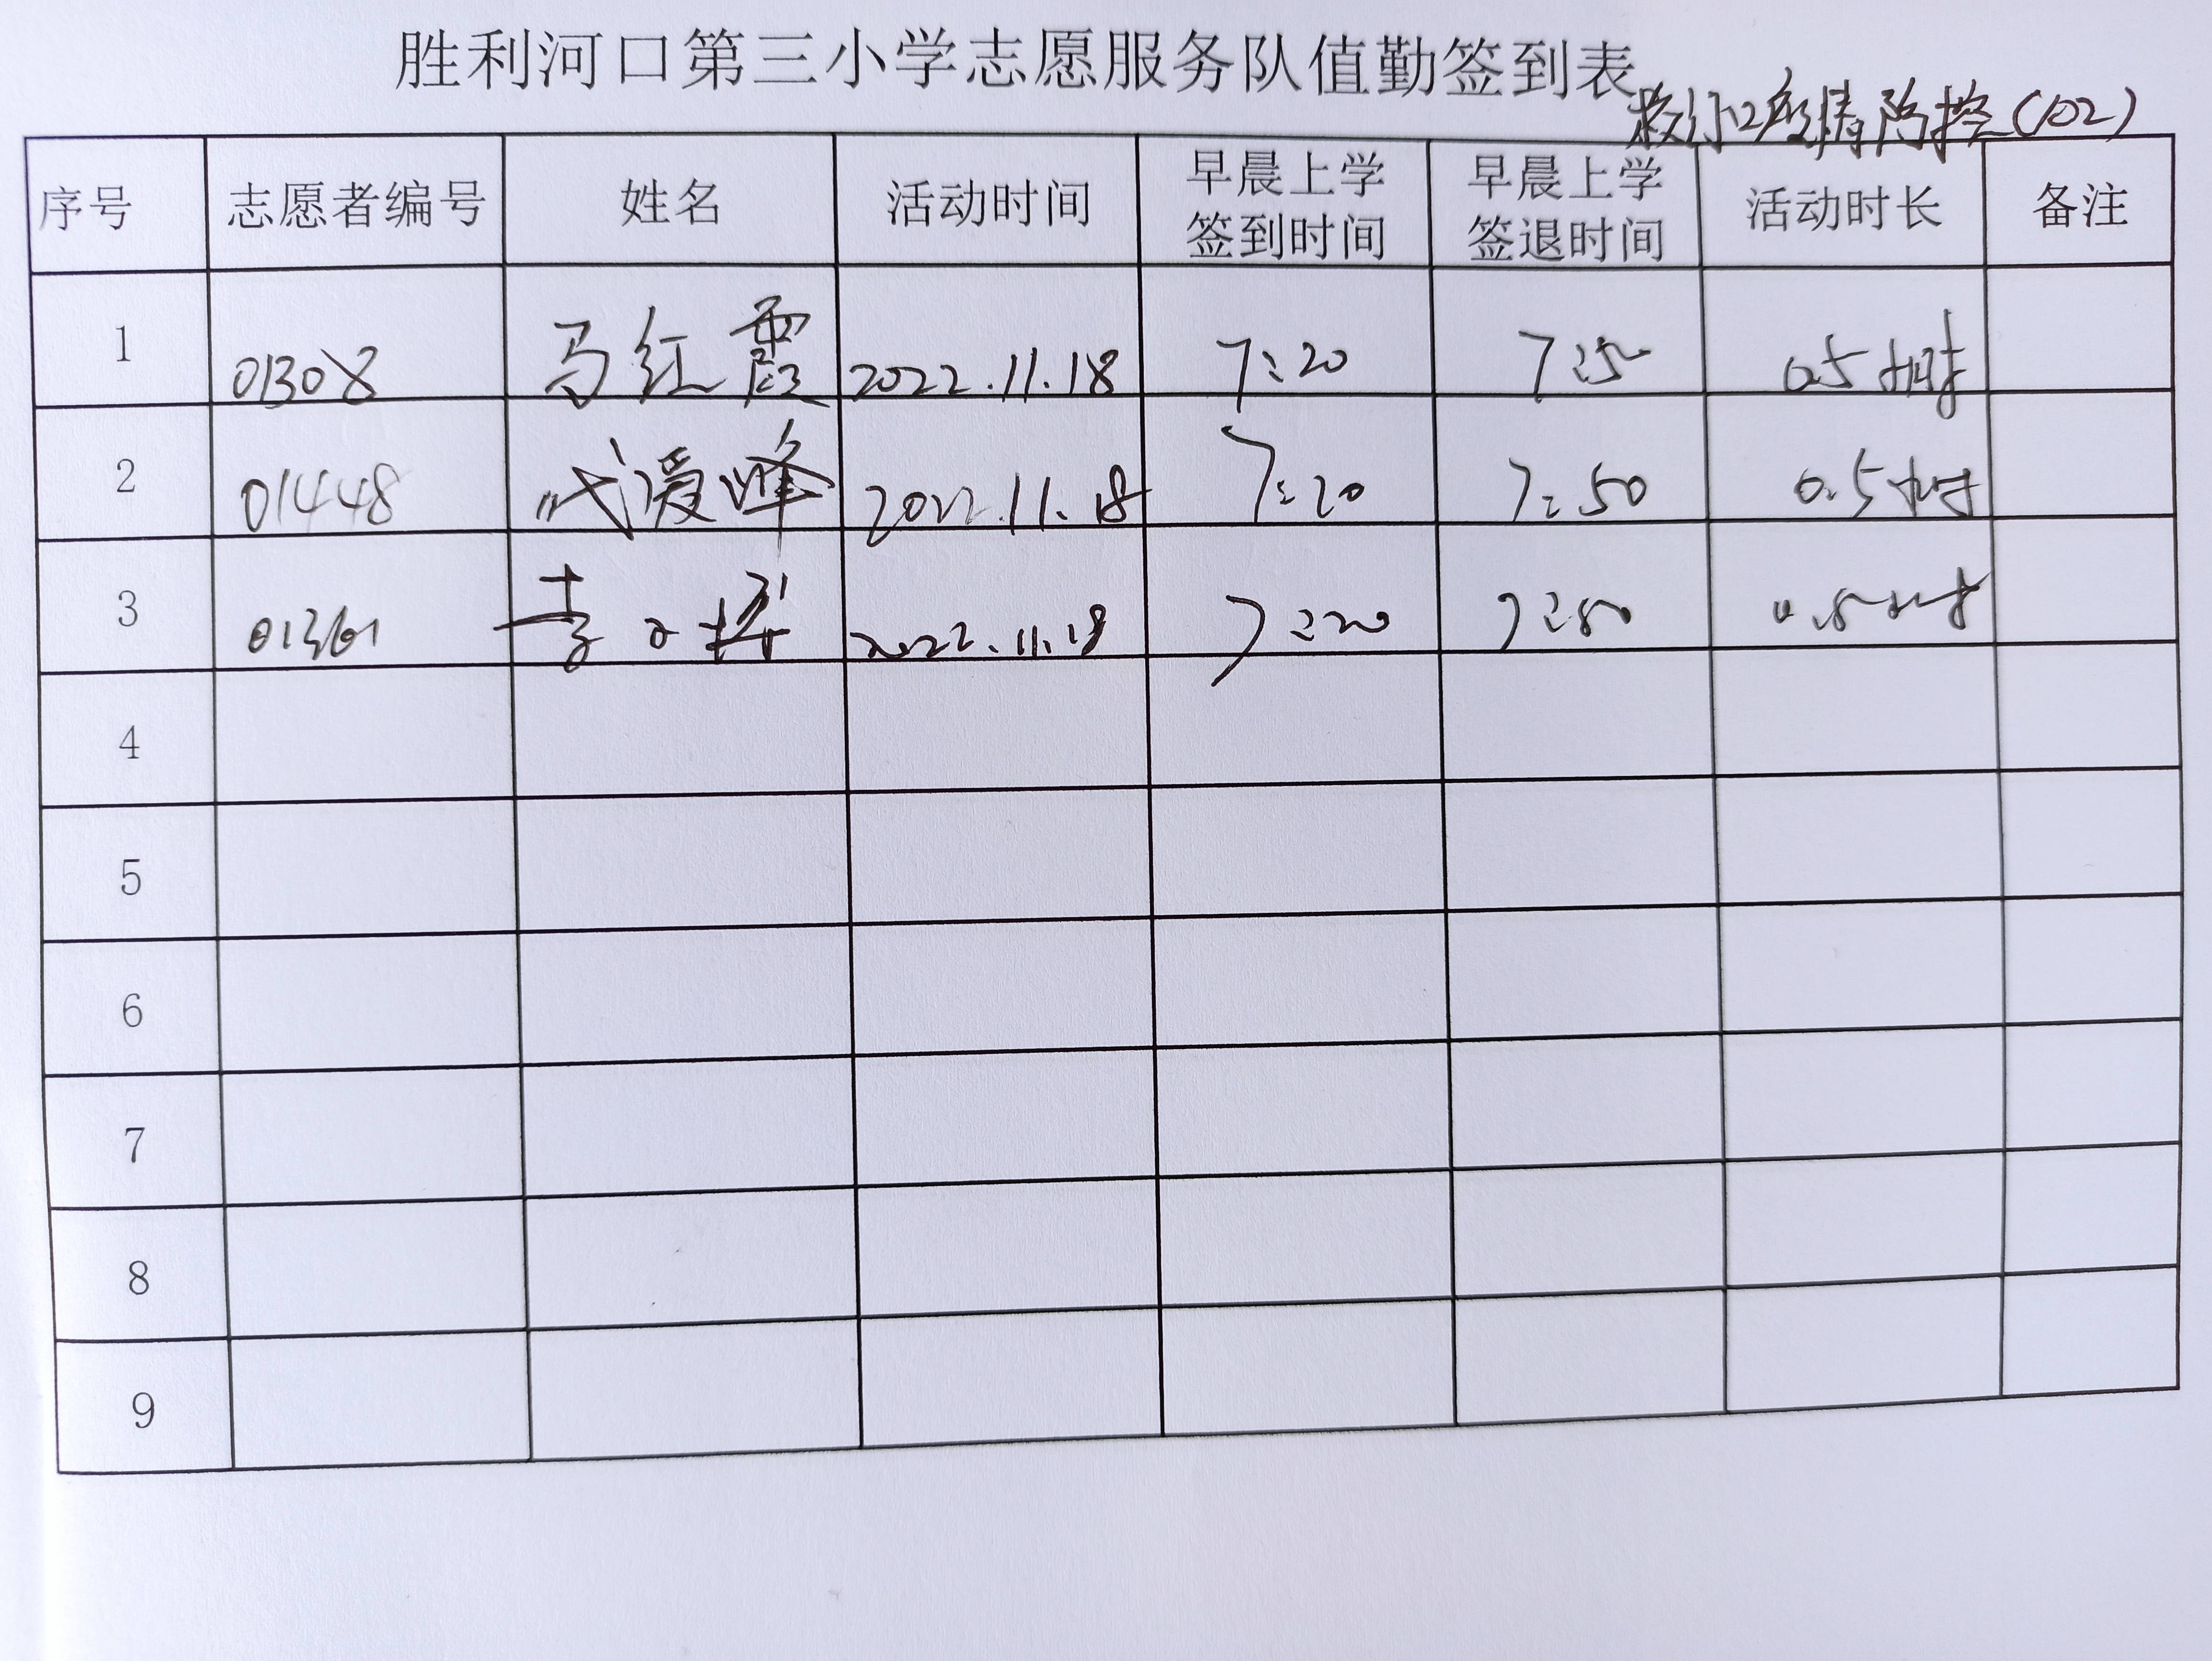 胜利河口第三小学志愿服务队值勤签到表
校门口疫情防控(102)
序号 志愿者编号 姓名 活动时间 早晨上学签到时间 早晨上学签退时间 活动时长 备注
1 01308 马红霞 2022.11.18 7:20 7:5 0.5小时
2 01448 代爱峰 2022.11.18 7:20 7:50 0.5小时
3 01361 李 2022.11.18 7:20 7:50 0.5小时
4
5
6
7
8
9